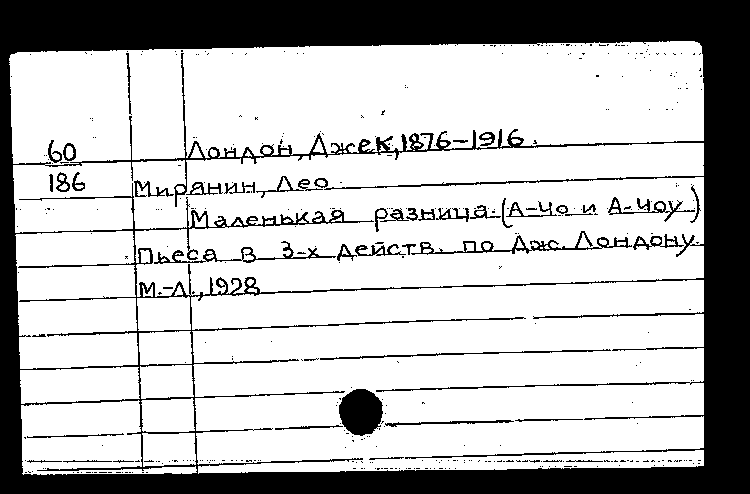 60 Лондон, Джек, 1876-1916.
186 Мирянин, Лео
Маленькая разница. (А-Чо и А-Чоу)
Пьеса в 3-х действ. по Дж. Лондону.
М.-Л., 1928